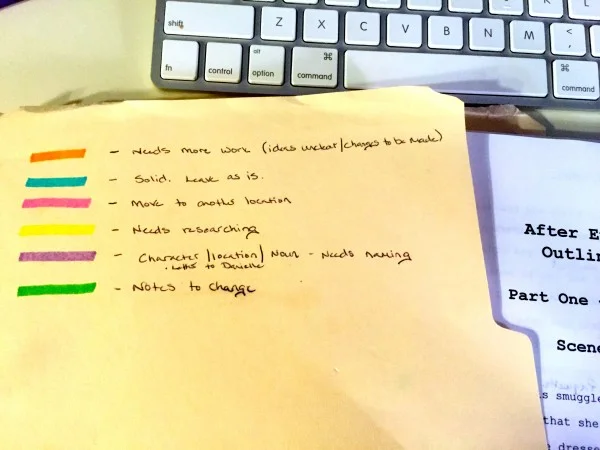 shift Z X C V B N M < ,
fn control alt option ⌘ command ⌘ command
- Needs more work (ideas unclear/changes to be made)
- Solid. Leave as is.
- Move to another location
- Needs researching
- Character/location/Noun - Needs naming
to Danielle
- Notes to change
After E
Outlin
Part One
Scene
s smuggle
that she
dresse